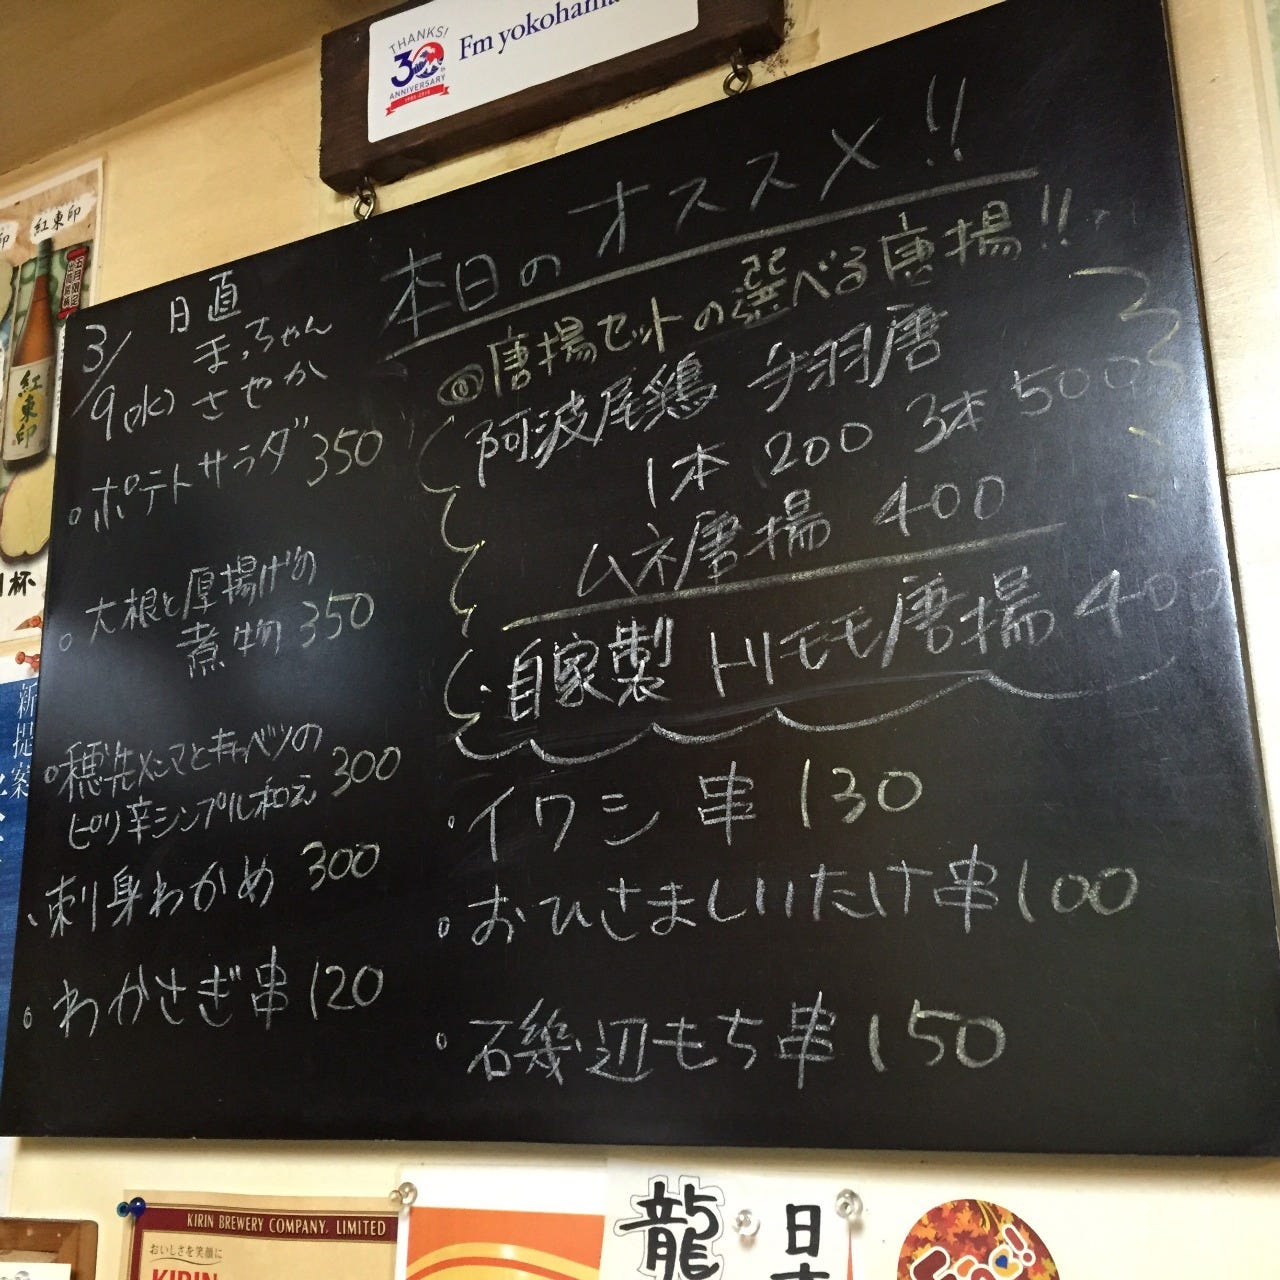 THANKS!
30th
ANNIVERSARY
Fm yokohama
本日のオススメ!!
3/9(水)
日直
まっちゃん
さやか
。ポテトサラダ 350
。大根と厚揚げの
煮物 350
。穂先メンマとキャベツの
ピリ辛シンプル和え 300
、刺身わかめ 300
。わかさぎ串 120
◎唐揚セットの選べる唐揚!!
阿波尾鶏 手羽唐
1本 200 3本 500
ムネ唐揚 400
自家製 トリモモ唐揚 400
・イワシ 串 130
。おひさましいたけ串 100
。磯辺もち串 150
紅東印
紅東印
杯
新提案
KIRIN BREWERY COMPANY, LIMITED
おいしさを笑顔に
KIRIN
龍
日